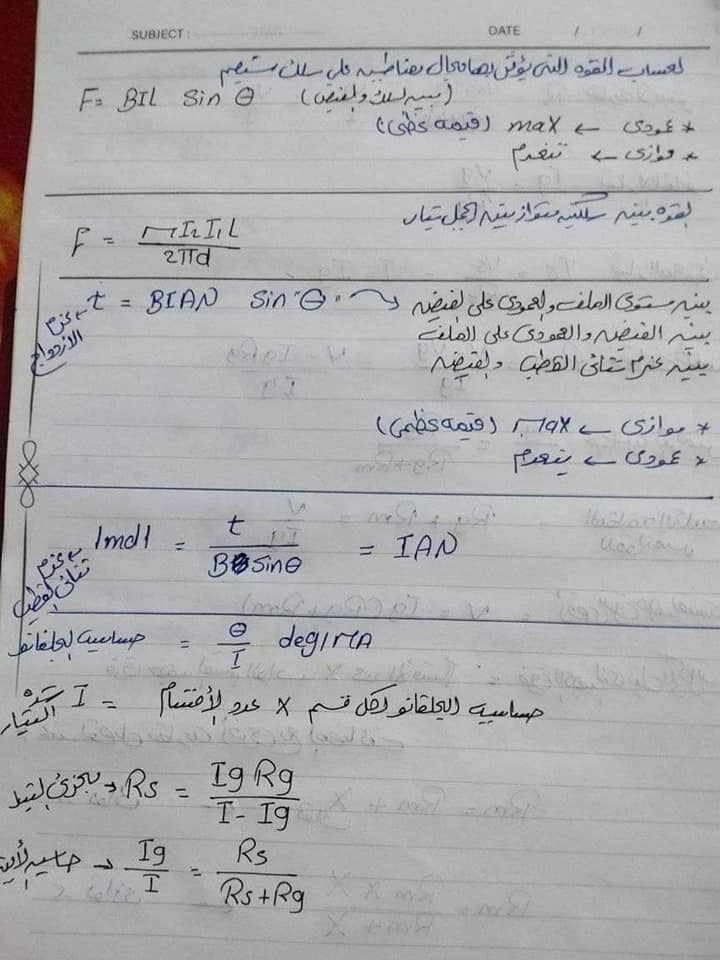 SUBJECT : DATE / /
لحساب القوه التى يؤثر بها مجال مغناطيسى على سلك مستقيم
F = BIL Sin θ (بين السلك والفيض)
* عمودى ← max (قيمه عظمى)
* موازى ← تنعدم
القوه بين سلكين متوازيين يحمل تيار
F = μ I₂ I₁ L / 2πd
عزم الازدواج ← t = BIAN Sin θ → بين مستوى الملف والعمودى على الفيض
بين الفيض والعمودى على الملف
بين عزم ثنائى القطب والفيض
* موازى ← Max (قيمه عظمى)
* عمودى ← ينعدم
عزم ثنائى القطب ← |md| = t / B Sin θ = IAN
حساسيه الجلفانو = θ / I deg/MA
شده التيار I = حساسيه الجلفانو لكل قسم × عدد الأقسام
مجزئ التيار ← Rs = Ig Rg / I - Ig
حساسيه ← Ig / I = Rs / Rs + Rg